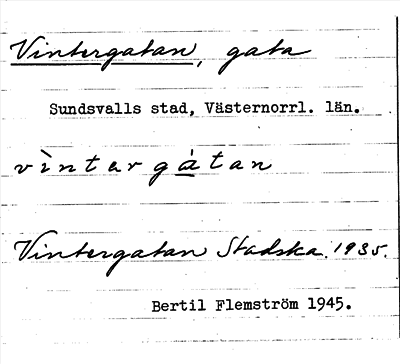 Vintergatan, gata
Sundsvalls stad, Västernorrl. län.
vìntergàtan
Vintergatan Stadska. 1935.
Bertil Flemström 1945.